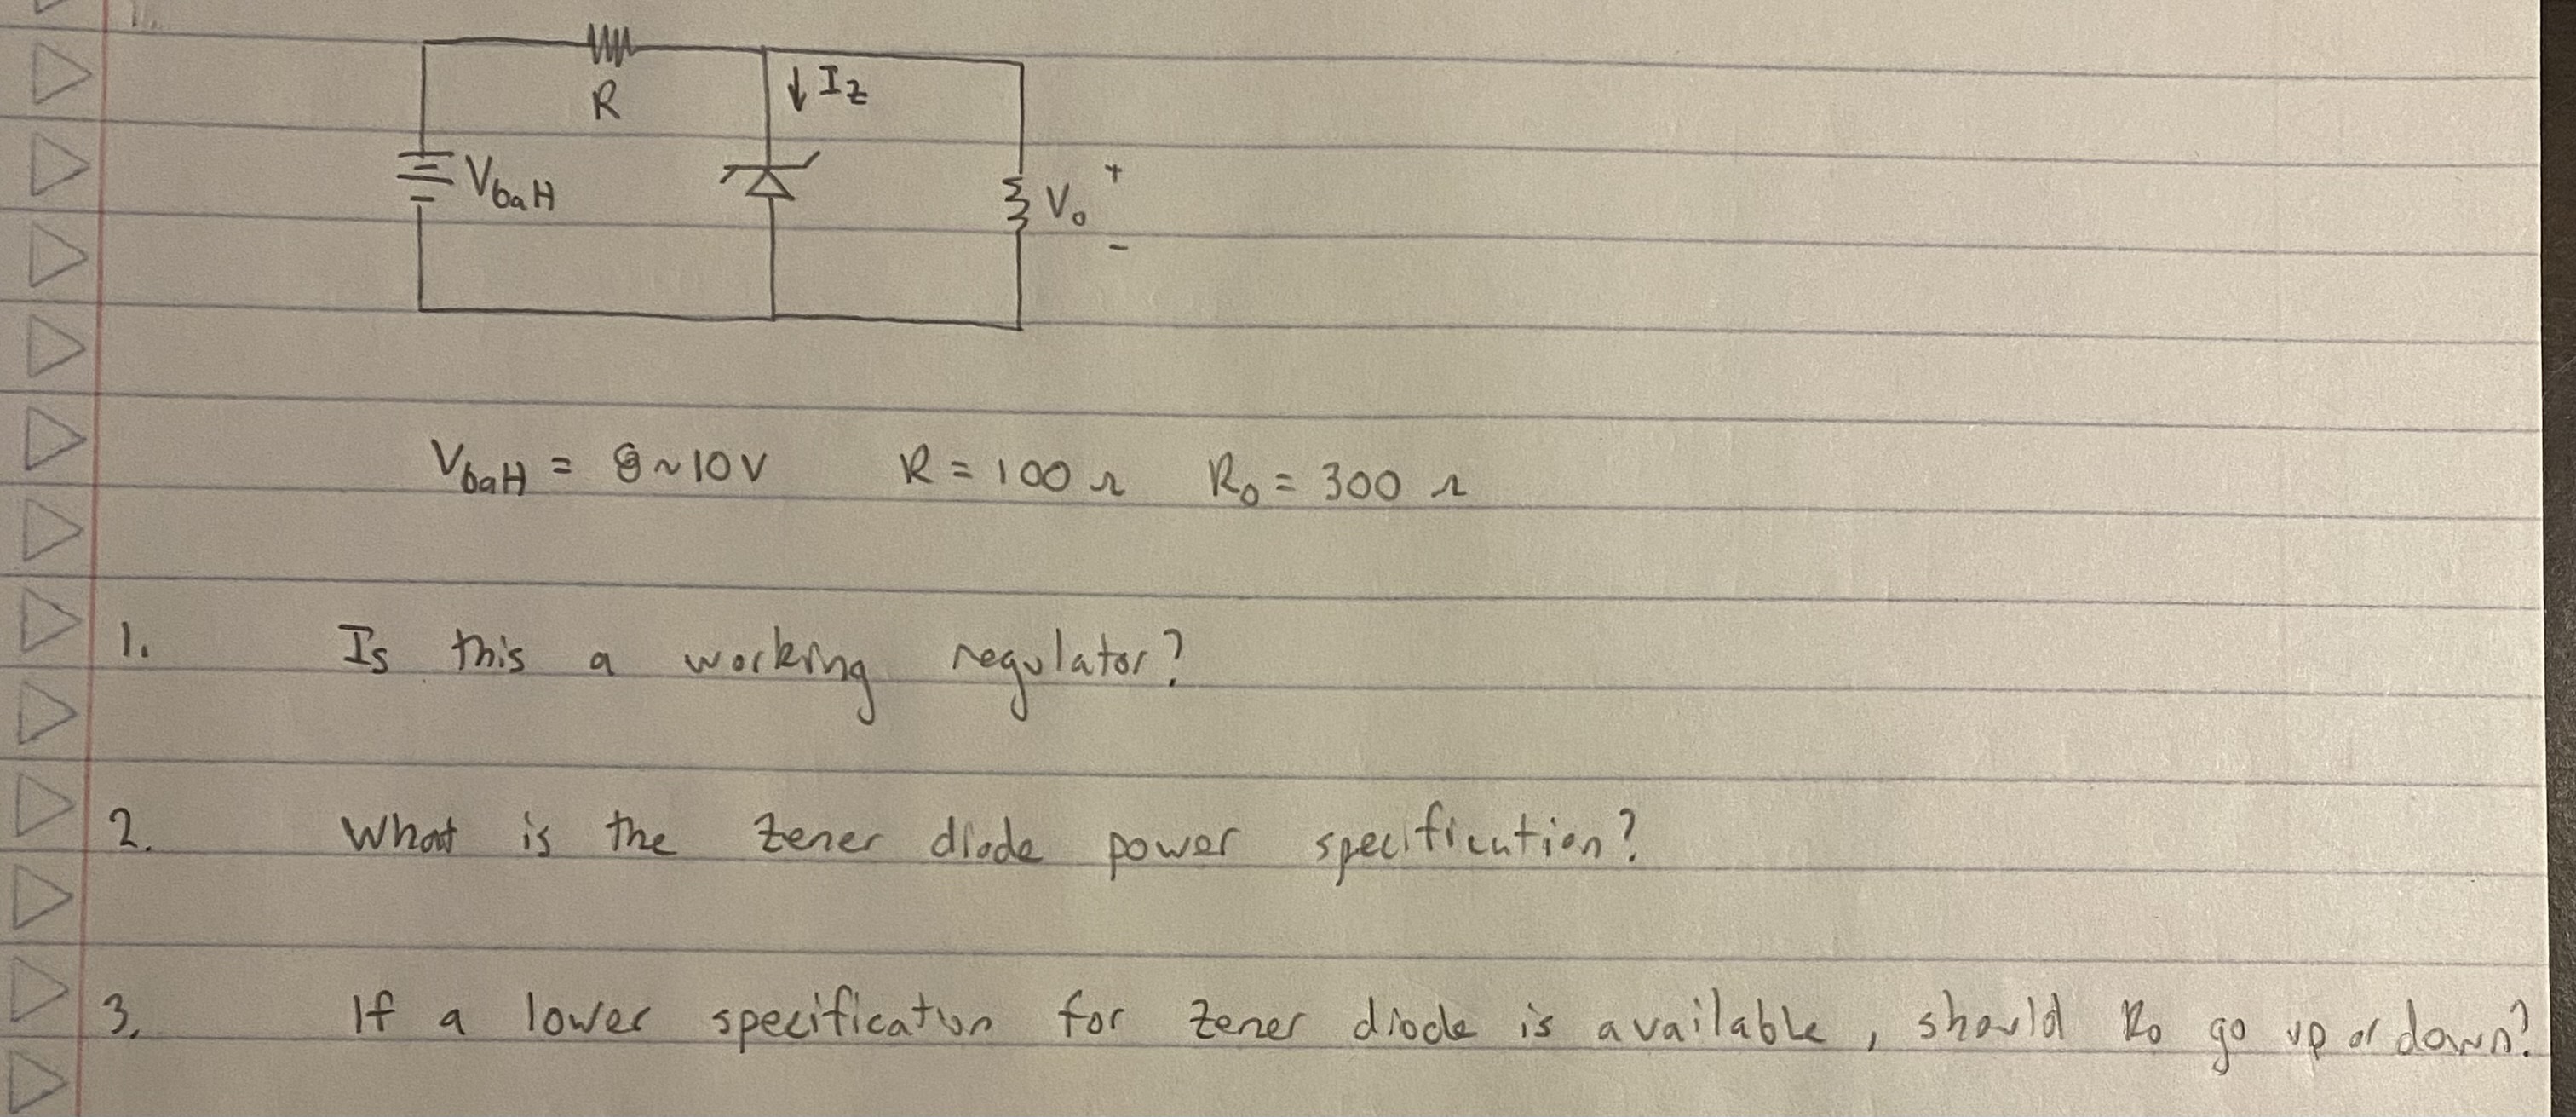 R
↓ Iz
Vbatt
+
Vo
-
Vbatt = 8~10V R = 100 Ω Ro = 300 Ω
1. Is this a working regulator?
2. What is the zener diode power specification?
3. If a lower specification for zener diode is available, should Ro go up or down?